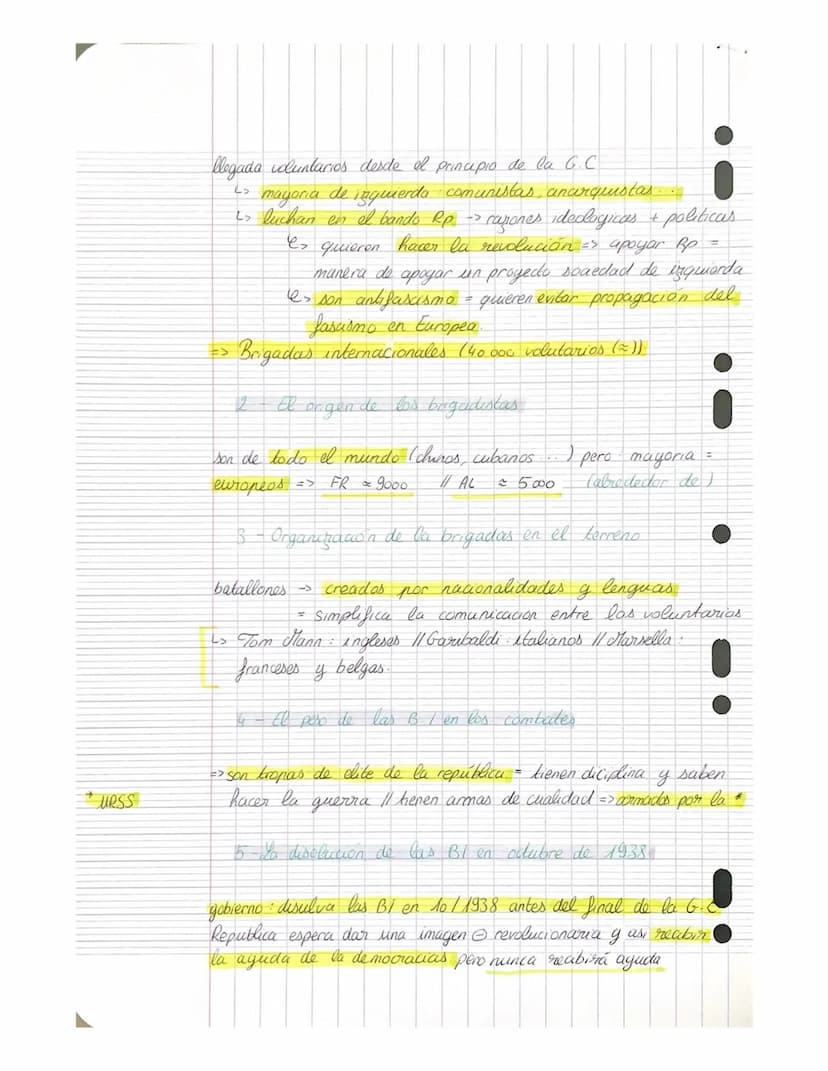 llegada voluntarios desde el principio de la G.C
↳ mayoria de izquierda : comunistas, anarquistas ...
↳ luchan en el bando Rp -> razones ideologicas + politicas
↳ quieren hacer la revolución => apoyar Rp =
manera de apoyar un proyecto sociedad de izquierda
↳ son antifascismo = quieren evitar propagación del
fascismo en Europea.
=> Brigadas internacionales (40 000 volutarios (≈))
2 - El origen de los brigadistas
son de todo el mundo (chinos, cubanos ...) pero mayoria =
europeos => FR ≈ 9000 // AL ≈ 5 000 (alrededor de)
3 - Organización de la brigadas en el terreno
batallones -> creados por nacionalidades y lenguas
= simplifica la comunicacion entre los voluntarios
↳ Tom Mann : ingleses // Garibaldi : italianos // Marsella :
franceses y belgas.
4 - El peso de las BI en los combates
=> son tropas de elite de la república = tienen diciplina y saben
hacer la guerra // tienen armas de cualidad => armados por la *
* URSS
5 - La disolución de las BI en octubre de 1938
gobierno : disulva las BI en 10/1938 antes del final de la G.C
Republica espera dar una imagen ⊖ revolucionaria y asi reabir
la ayuda de la democracias pero nunca reabirá ayuda